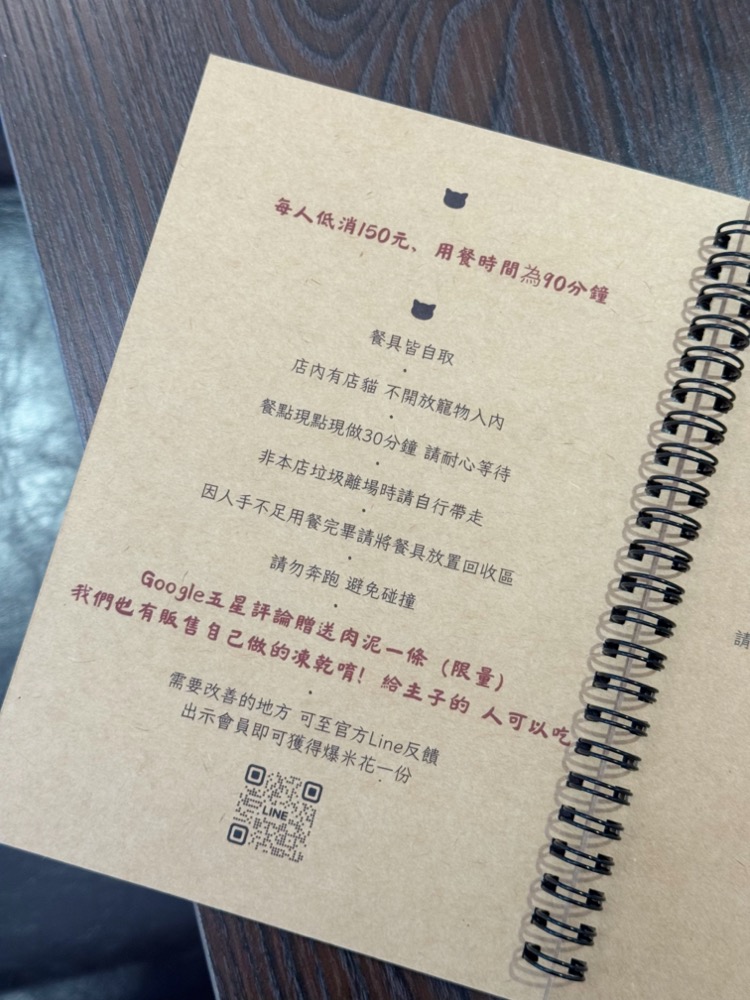 每人低消150元、用餐時間為90分鐘
餐具皆自取
店內有店貓 不開放寵物入內
餐點現點現做30分鐘 請耐心等待
非本店垃圾離場時請自行帶走
因人手不足用餐完畢請將餐具放置回收區
請勿奔跑 避免碰撞
Google五星評論贈送肉泥一條（限量）
我們也有販售自己做的凍乾唷！給主子的 人可以吃
需要改善的地方 可至官方Line反饋
出示會員即可獲得爆米花一份
LINE
請